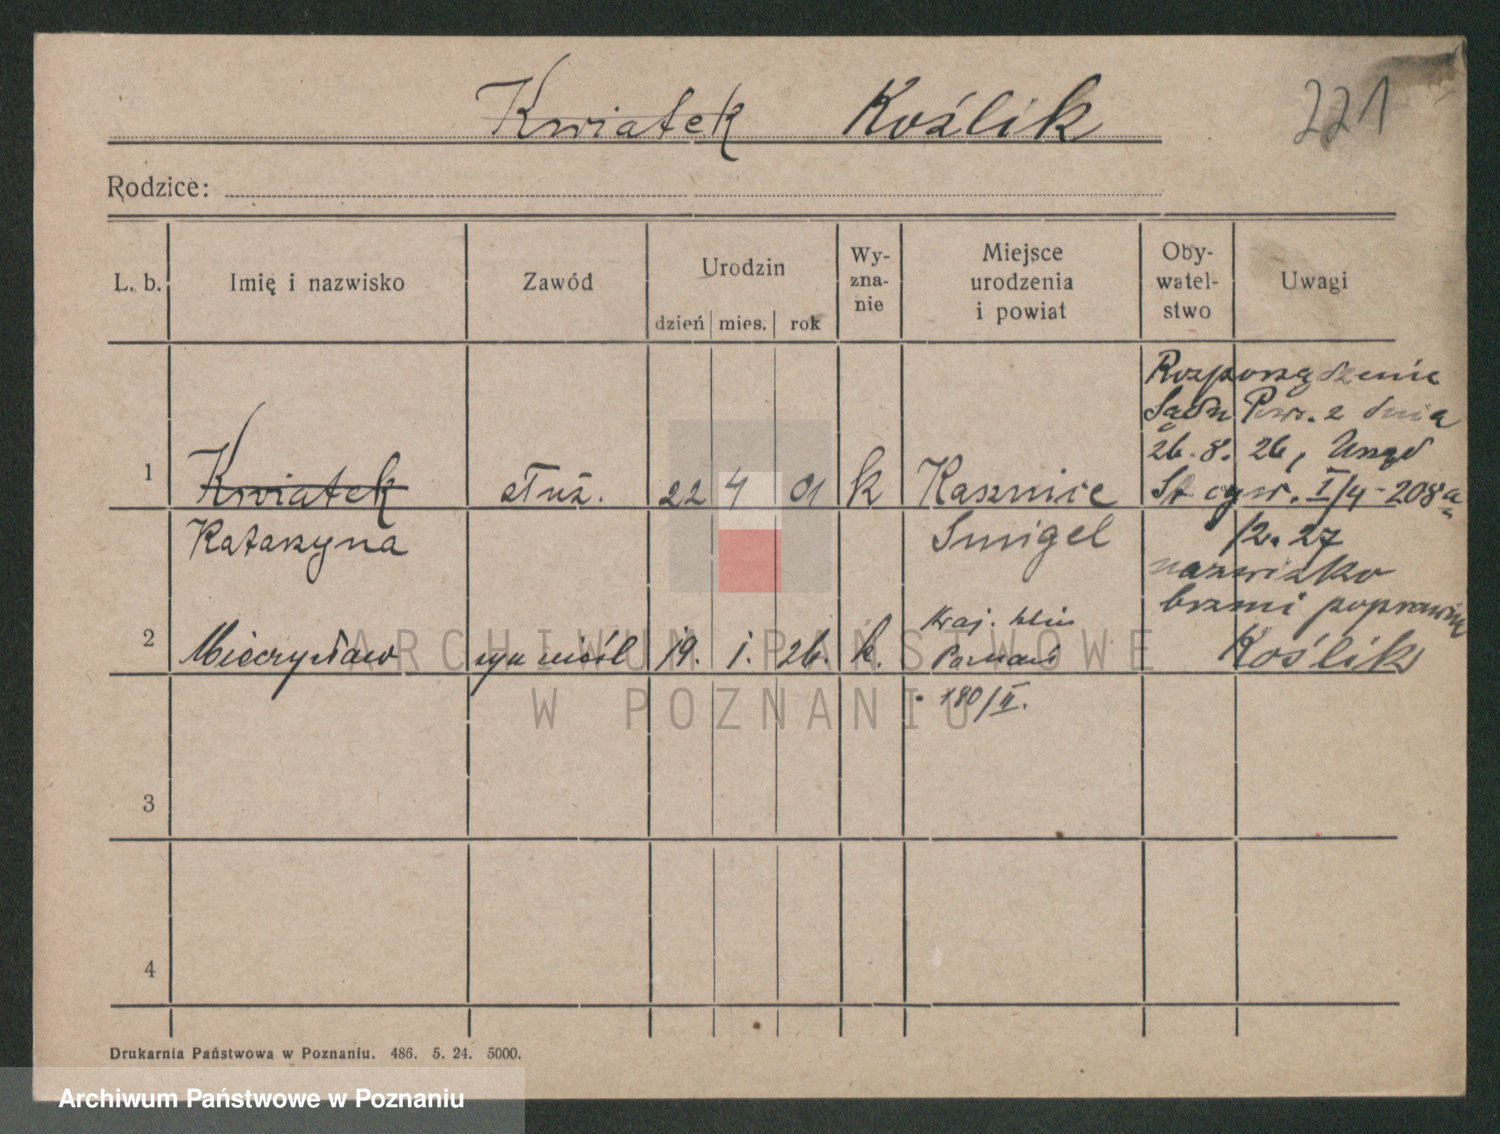 Kwiatek Koślik 221
Rodzice:
L. b. Imię i nazwisko Zawód Urodzin dzień mies. rok Wy-zna-nie Miejsce urodzenia i powiat Oby-watel-stwo Uwagi
Rozporządzenie
Sądu Pow. z dnia
26. 8. 26, Urząd
1 Kwiatek służ. 22 4 01 k Kasznice St. cyw. I/4-208a
Katarzyna Smigel /2. 27
nazwisko
brzmi poprawnie
2 Mieczysław syn nieśl 19. 1. 26. k. Kraj. klin Poznań Koślik
180/II.
3
4
Drukarnia Państwowa w Poznaniu. 486. 5. 24. 5000.
ARCHIWUM PAŃSTWOWE
W POZNANIU
Archiwum Państwowe w Poznaniu